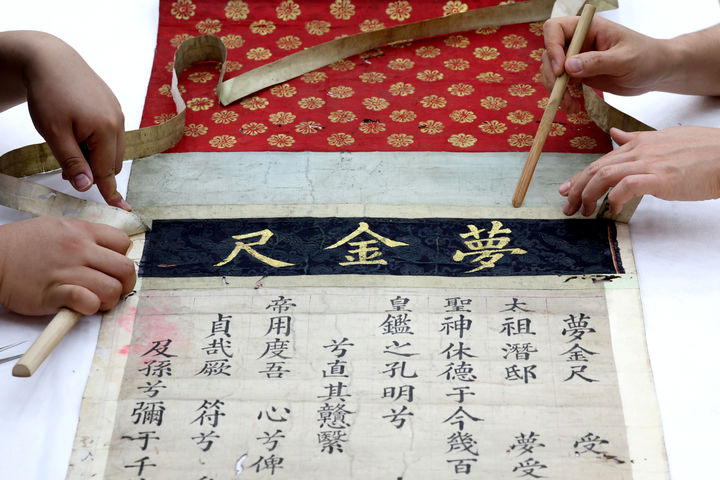 夢金尺
夢金尺 受
太祖潛邸 夢受
聖神休德于今幾百
皇鑑之孔明兮
兮直其戇繄
帝用度吾 心兮俾
貞哉厥 符兮
及孫兮彌于千